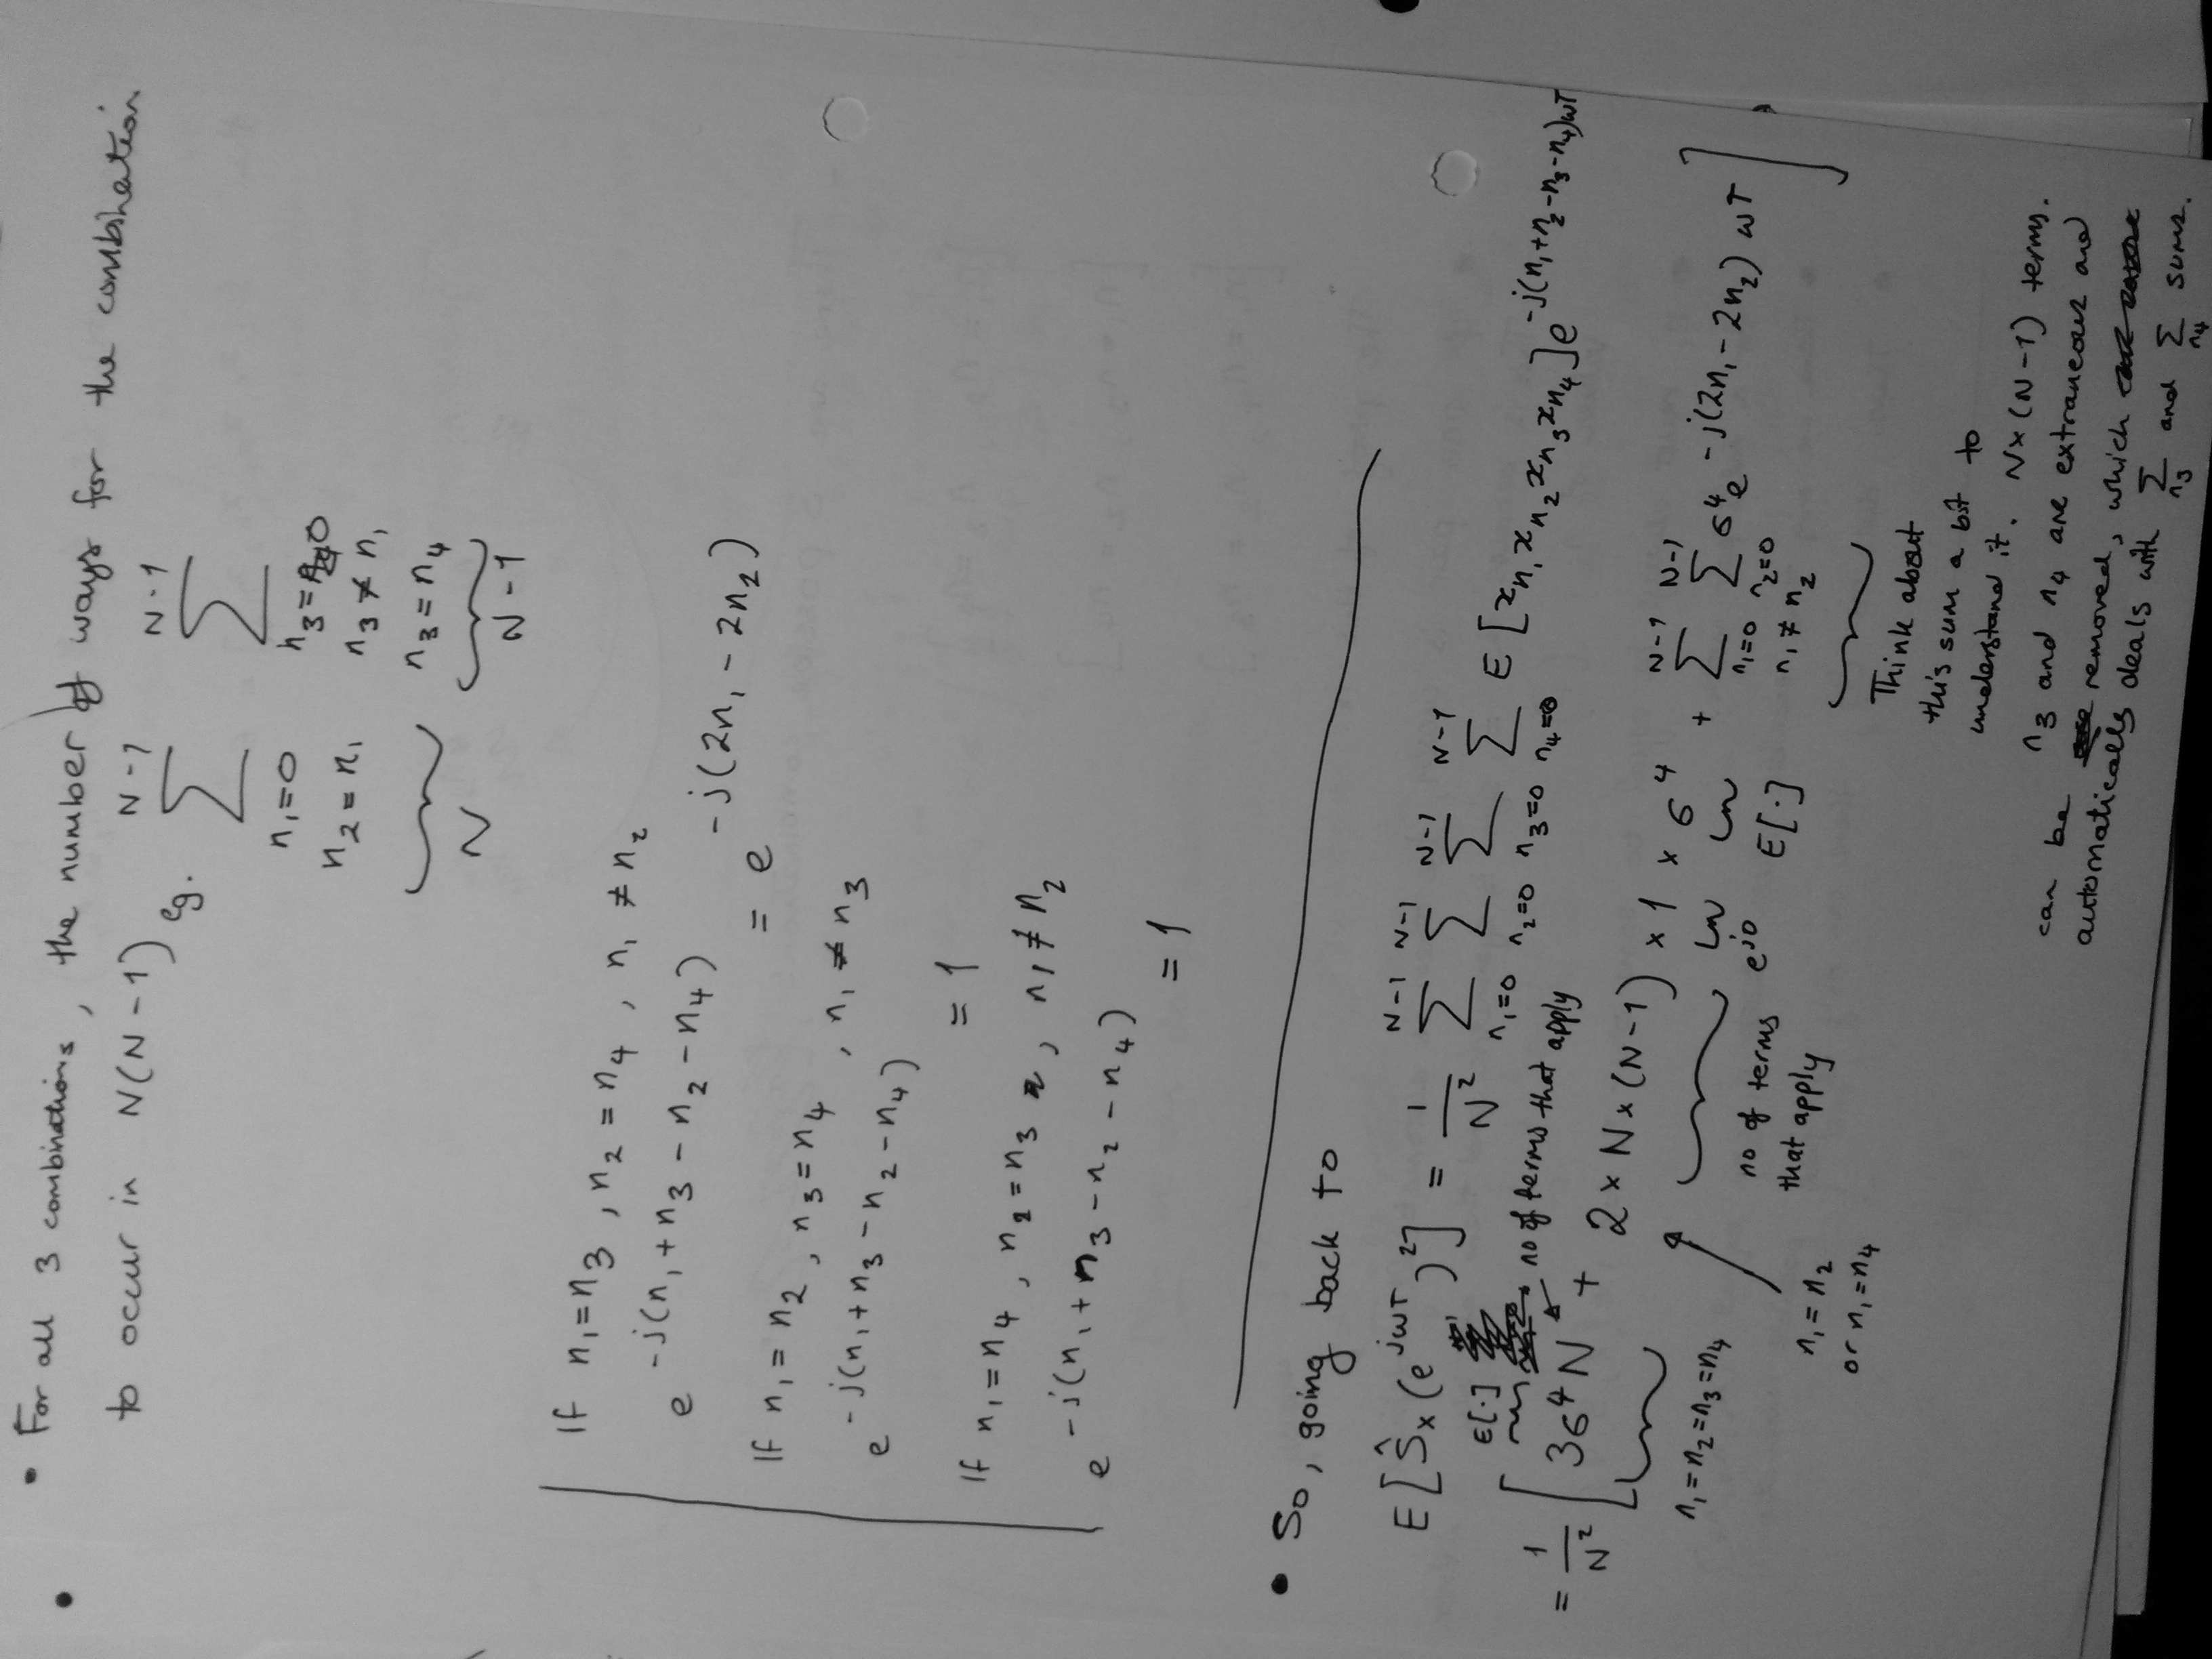 • For all 3 combinations, the number of ways for the combination
to occur in N(N-1) eg. \sum_{n_1=0, n_2=n_1}^{N-1} \sum_{n_3=0, n_3≠n_1, n_3=n_4}^{N-1}
N N-1
If n_1=n_3, n_2=n_4, n_1≠n_2
e^{-j(n_1+n_3-n_2-n_4)} = e^{-j(2n_1-2n_2)}
If n_1=n_2, n_3=n_4, n_1≠n_3
e^{-j(n_1+n_3-n_2-n_4)} = 1
If n_1=n_4, n_2=n_3, n_1≠n_2
e^{-j(n_1+n_3-n_2-n_4)} = 1
• So, going back to
E[Ŝ_x(e^{jωT})^2] = \frac{1}{N^2} \sum_{n_1=0}^{N-1} \sum_{n_2=0}^{N-1} \sum_{n_3=0}^{N-1} \sum_{n_4=0}^{N-1} E[x_{n_1}x_{n_2}x_{n_3}x_{n_4}]e^{-j(n_1+n_2-n_3-n_4)ωT}
E[·] no of terms that apply
= \frac{1}{N^2} [3σ^4N + 2×N×(N-1)×1×σ^4 + \sum_{n_1=0, n_1≠n_2}^{N-1} \sum_{n_2=0}^{N-1} σ^4e^{-j(2n_1-2n_2)ωT}]
n_1=n_2=n_3=n_4
n_1=n_2
or n_1=n_4
no of terms
that apply
e^{j0}
E[·]
Think about
this sum a bit to
understand it. N×(N-1) terms.
n_3 and n_4 are extraneous and
can be removed, which
automatically deals with \sum_{n_3} and \sum_{n_4} sums.